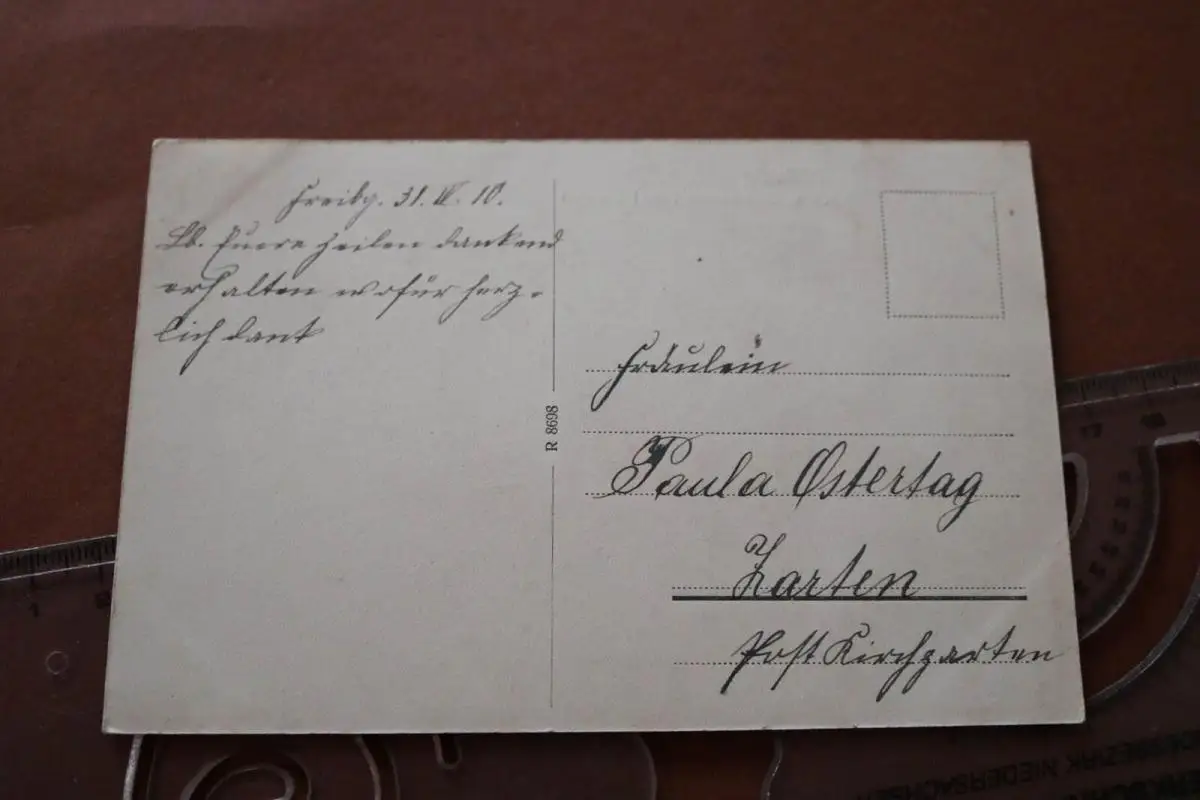 Freibg. 31. 10.
Lb. Euere Zeilen dankend
erhalten wofür herz-
lich dank
R 8698
Fräulein
Paula Ostertag
Zarten
Post Kirchzarten